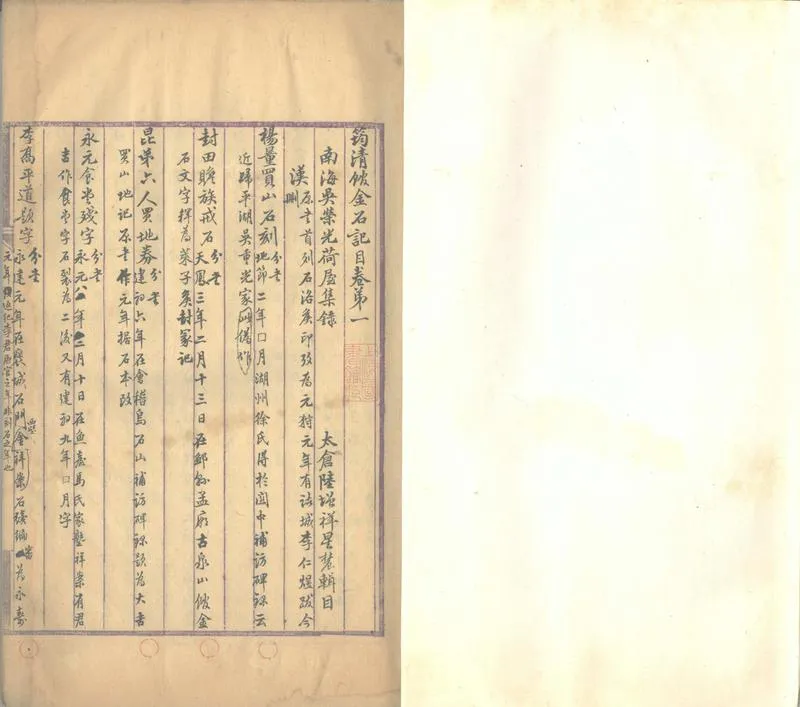 筠清館金石記目卷第一
南海吳榮光荷屋集錄 太倉陸增祥星農輯目
漢 原書首列石洛矦印攷為元狩元年有諸城李仁煜跋今刪
楊量買山石刻 分書 地節二年口月湖州徐氏得於蜀中補訪碑錄云
近歸平湖吳重光家
封田贍族戒石 分書 天鳳三年二月十三日在鄒縣孟廟古泉山館金
石文字釋為萊子矦封冢記
昆弟六人買地券 分書 建初六年在會稽烏石山補訪碑錄題為大吉
買山地記原書作元年據石本改
永元食堂殘字 分書 永元八年二月十日在魚臺馬氏家塾祥案有君
吉作食堂字石裂為二後又有建初九年口月字
李禹平道題字 分書 永建元年在襃城石門祥案石殘為永壽
元年 李君 官之年非刻石之年也